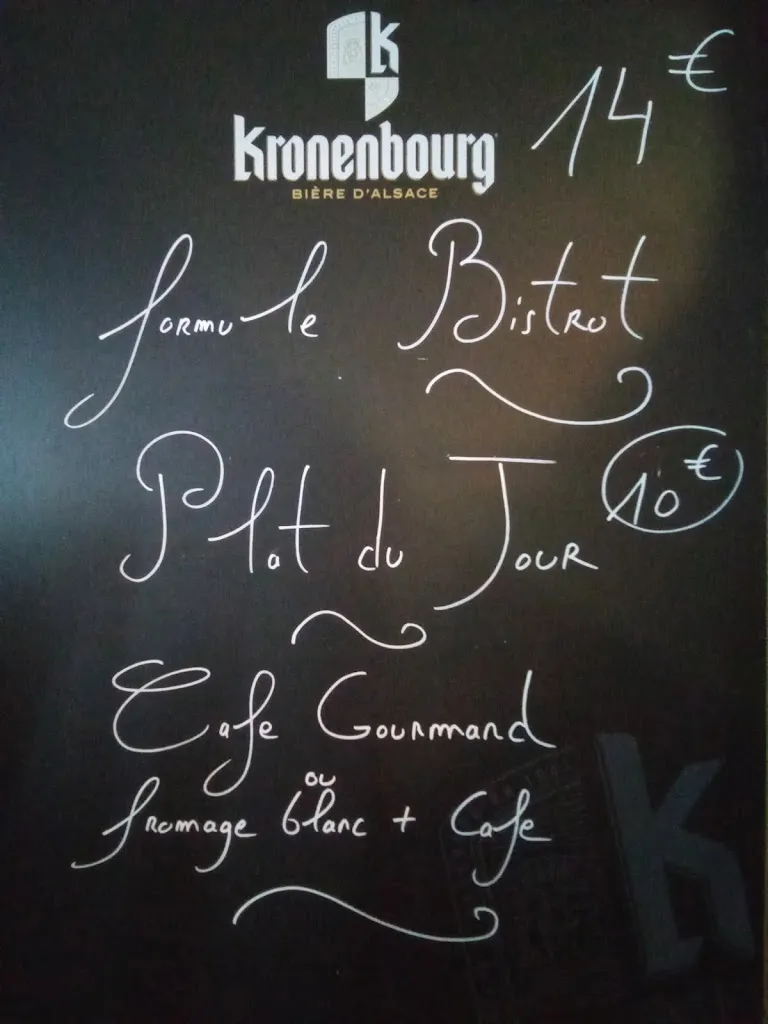 k
Kronenbourg
BIÈRE D'ALSACE
14€
formule Bistrot
Plat du Jour 10€
Cafe Gourmand
ou
fromage blanc + Cafe
K